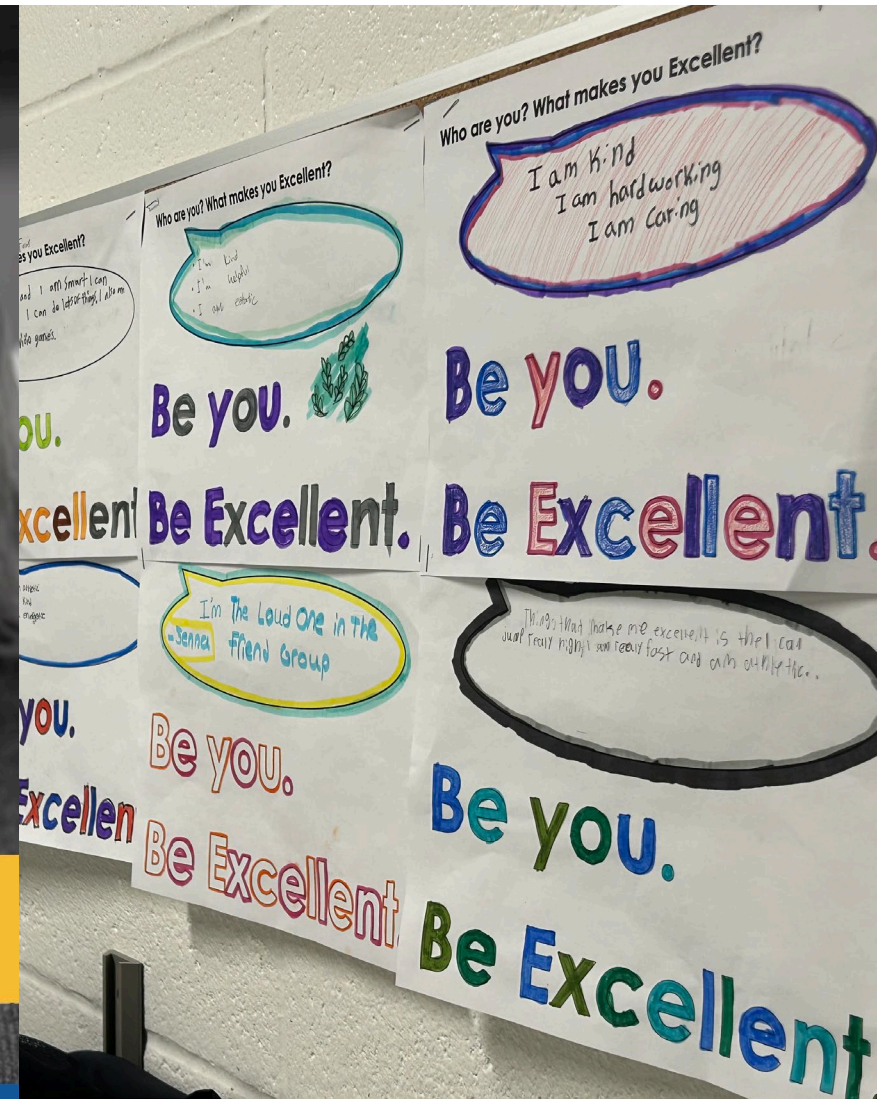 es you Excellent?
and I am smart I can
I can do lots of things, I also am
video games.
ou.
xcellent
Who are you? What makes you Excellent?
• I'm kind
• I'm helpful
• I am
Be you.
Be Excellent.
Who are you? What makes you Excellent?
I am kind
I am hardworking
I am caring
Be you.
Be Excellent.
kind
energetic
you.
Excellen
I'm The Loud One in The
-Senna Friend Group
Be you.
Be Excellent
Things that make me excellent is the I can
jump really high I am really fast and am
Be you.
Be Excellent